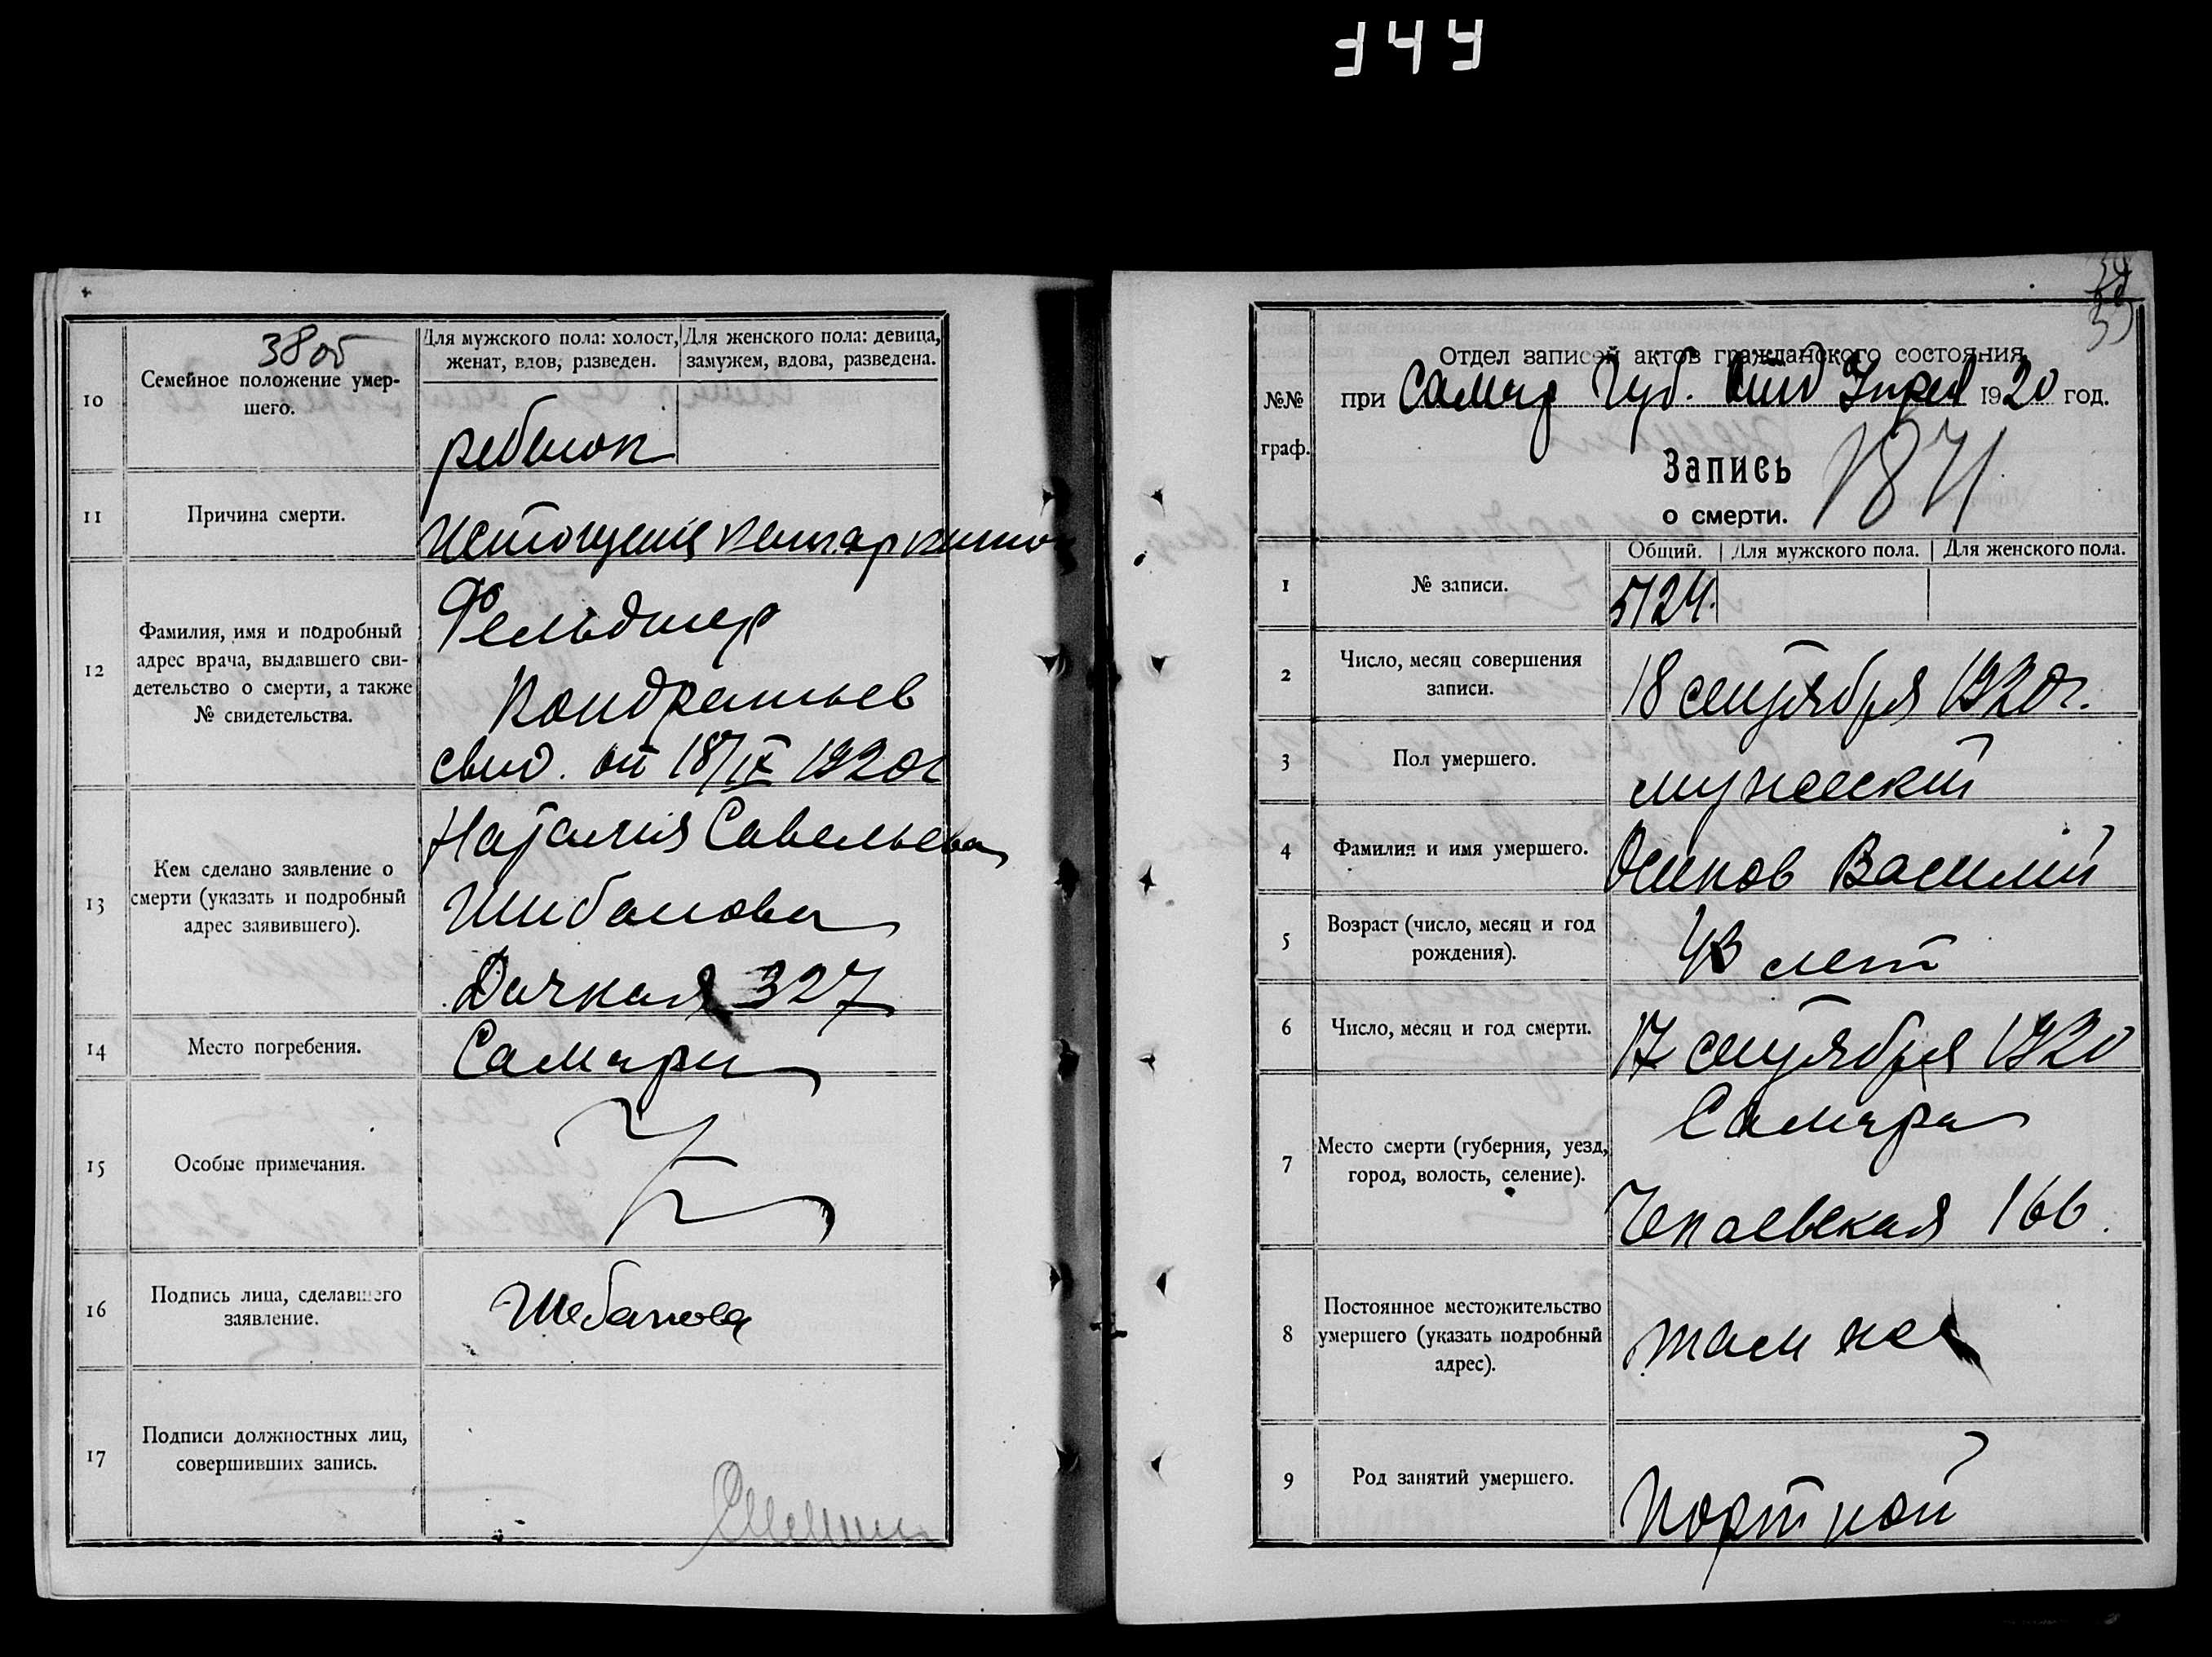 344
38 об
10
Семейное положение умер-
шего.
Для мужского пола: холост,
женат, вдов, разведен.
Для женского пола: девица,
замужем, вдова, разведена.
ребенок
11
Причина смерти.
Истощение
12
Фамилия, имя и подробный
адрес врача, выдавшего сви-
детельство о смерти, а также
№ свидетельства.
Фельдшер
Кондратьев
свид. от 18/IX 1920г
13
Кем сделано заявление о
смерти (указать и подробный
адрес заявившего).
Наталия Савельева
Шибанова
Дачная 327
14
Место погребения.
Самара
15
Особые примечания.
16
Подпись лица, сделавшего
заявление.
Шебанова
17
Подписи должностных лиц,
совершивших запись.
№№
граф.
Отдел записей актов гражданского состояния
при Самар Губ. Отд Управ 1920 год.
Запись
о смерти.
1871
Общий. Для мужского пола. Для женского пола.
1
№ записи.
5124.
2
Число, месяц совершения
записи.
18 сентября 1920г.
3
Пол умершего.
мужеский
4
Фамилия и имя умершего.
Осипов Василий
5
Возраст (число, месяц и год
рождения).
43 лет
6
Число, месяц и год смерти.
17 сентября 1920
7
Место смерти (губерния, уезд,
город, волость, селение).
Самара
Чапаевская 166.
8
Постоянное местожительство
умершего (указать подробный
адрес).
там же
9
Род занятий умершего.
Портной